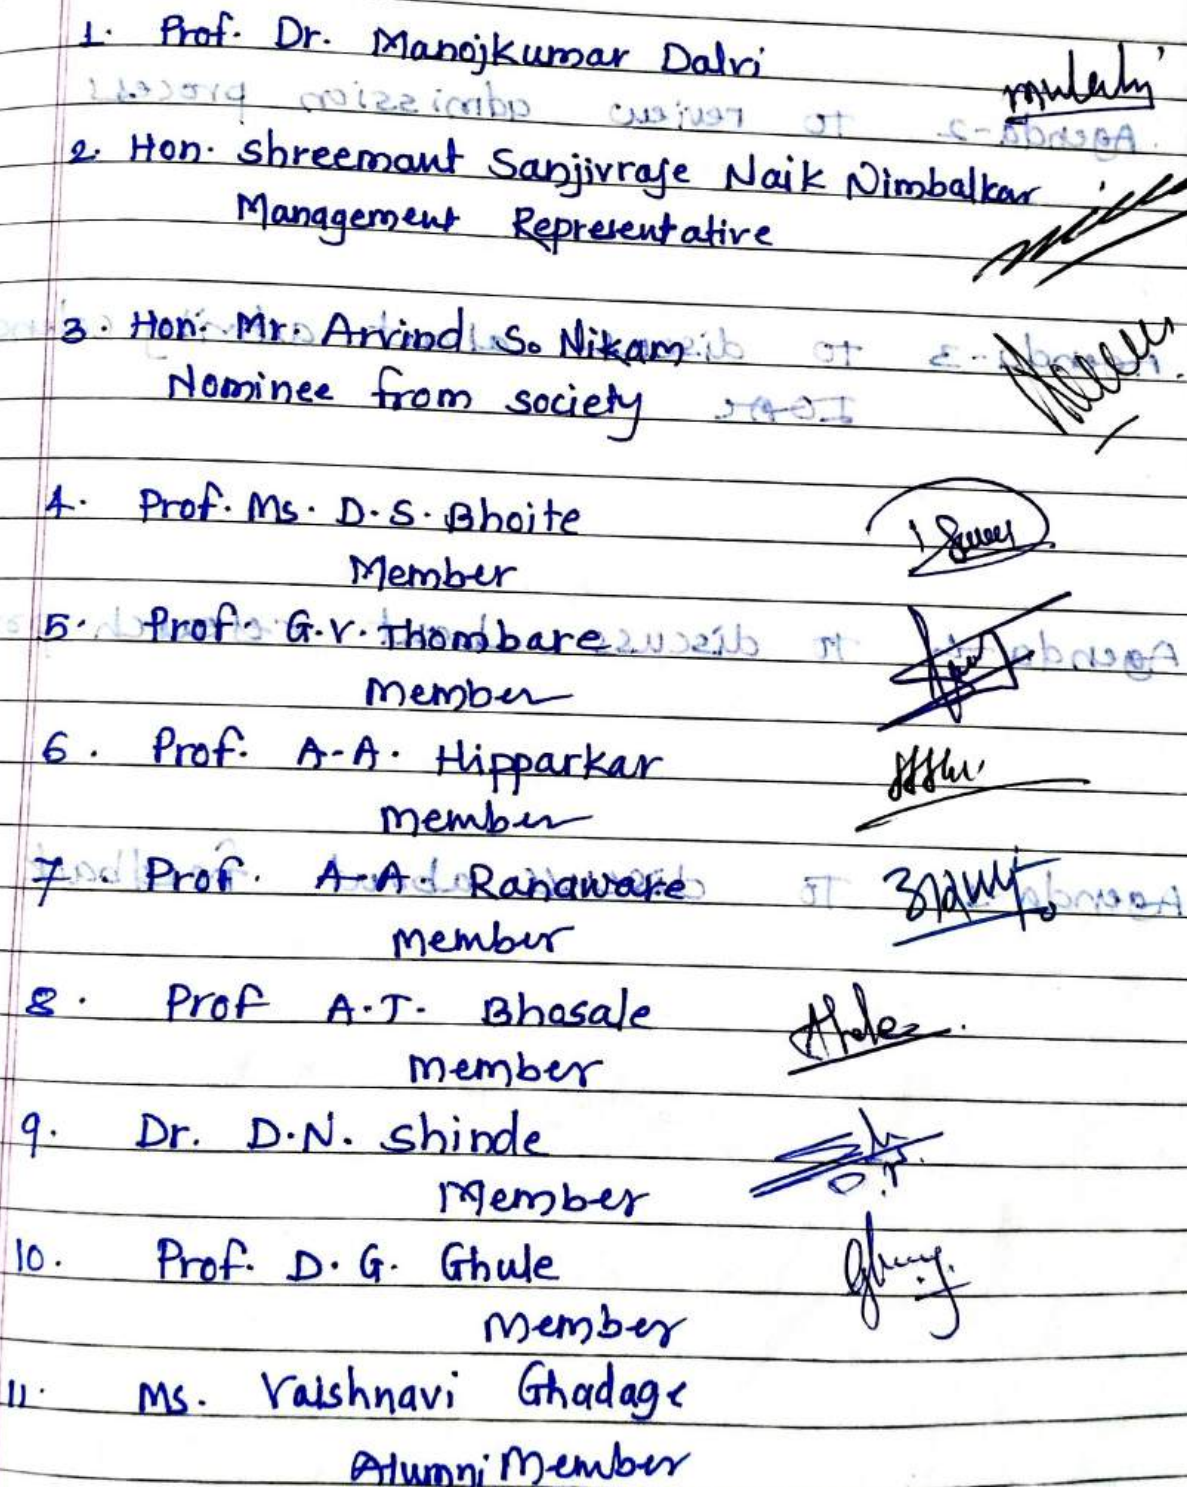 1. Prof. Dr. Manojkumar Dalvi
2. Hon. Shreemant Sanjivraje Naik Nimbalkar
Management Representative
3. Hon. Mr. Arvind S. Nikam
Nominee from society
4. Prof. Ms. D.S. Bhoite
Member
5. Prof. G.V. Thombare
Member
6. Prof. A.A. Hipparkar
Member
7. Prof. A.A. Ranaware
Member
8. Prof A.T. Bhosale
Member
9. Dr. D.N. Shinde
Member
10. Prof. D.G. Ghule
Member
11. Ms. Vaishnavi Ghadage
Alumni Member